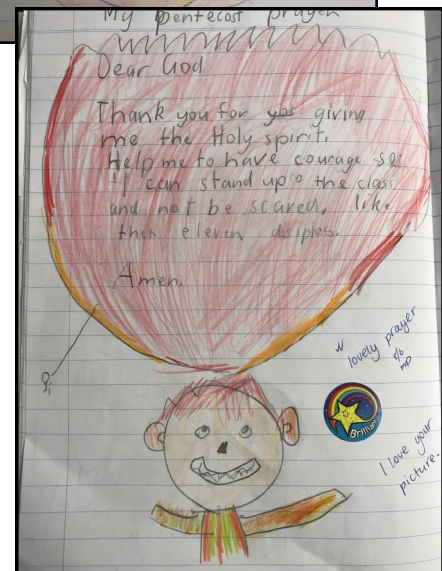 My Pentecost prayer
Dear God
Thank you for giving
me the Holy spirit.
Help me to have courage so
I can stand up to the class
and not be scared, like
then eleven disiples.
Amen.
lovely prayer
Brilliant
I love your
picture.